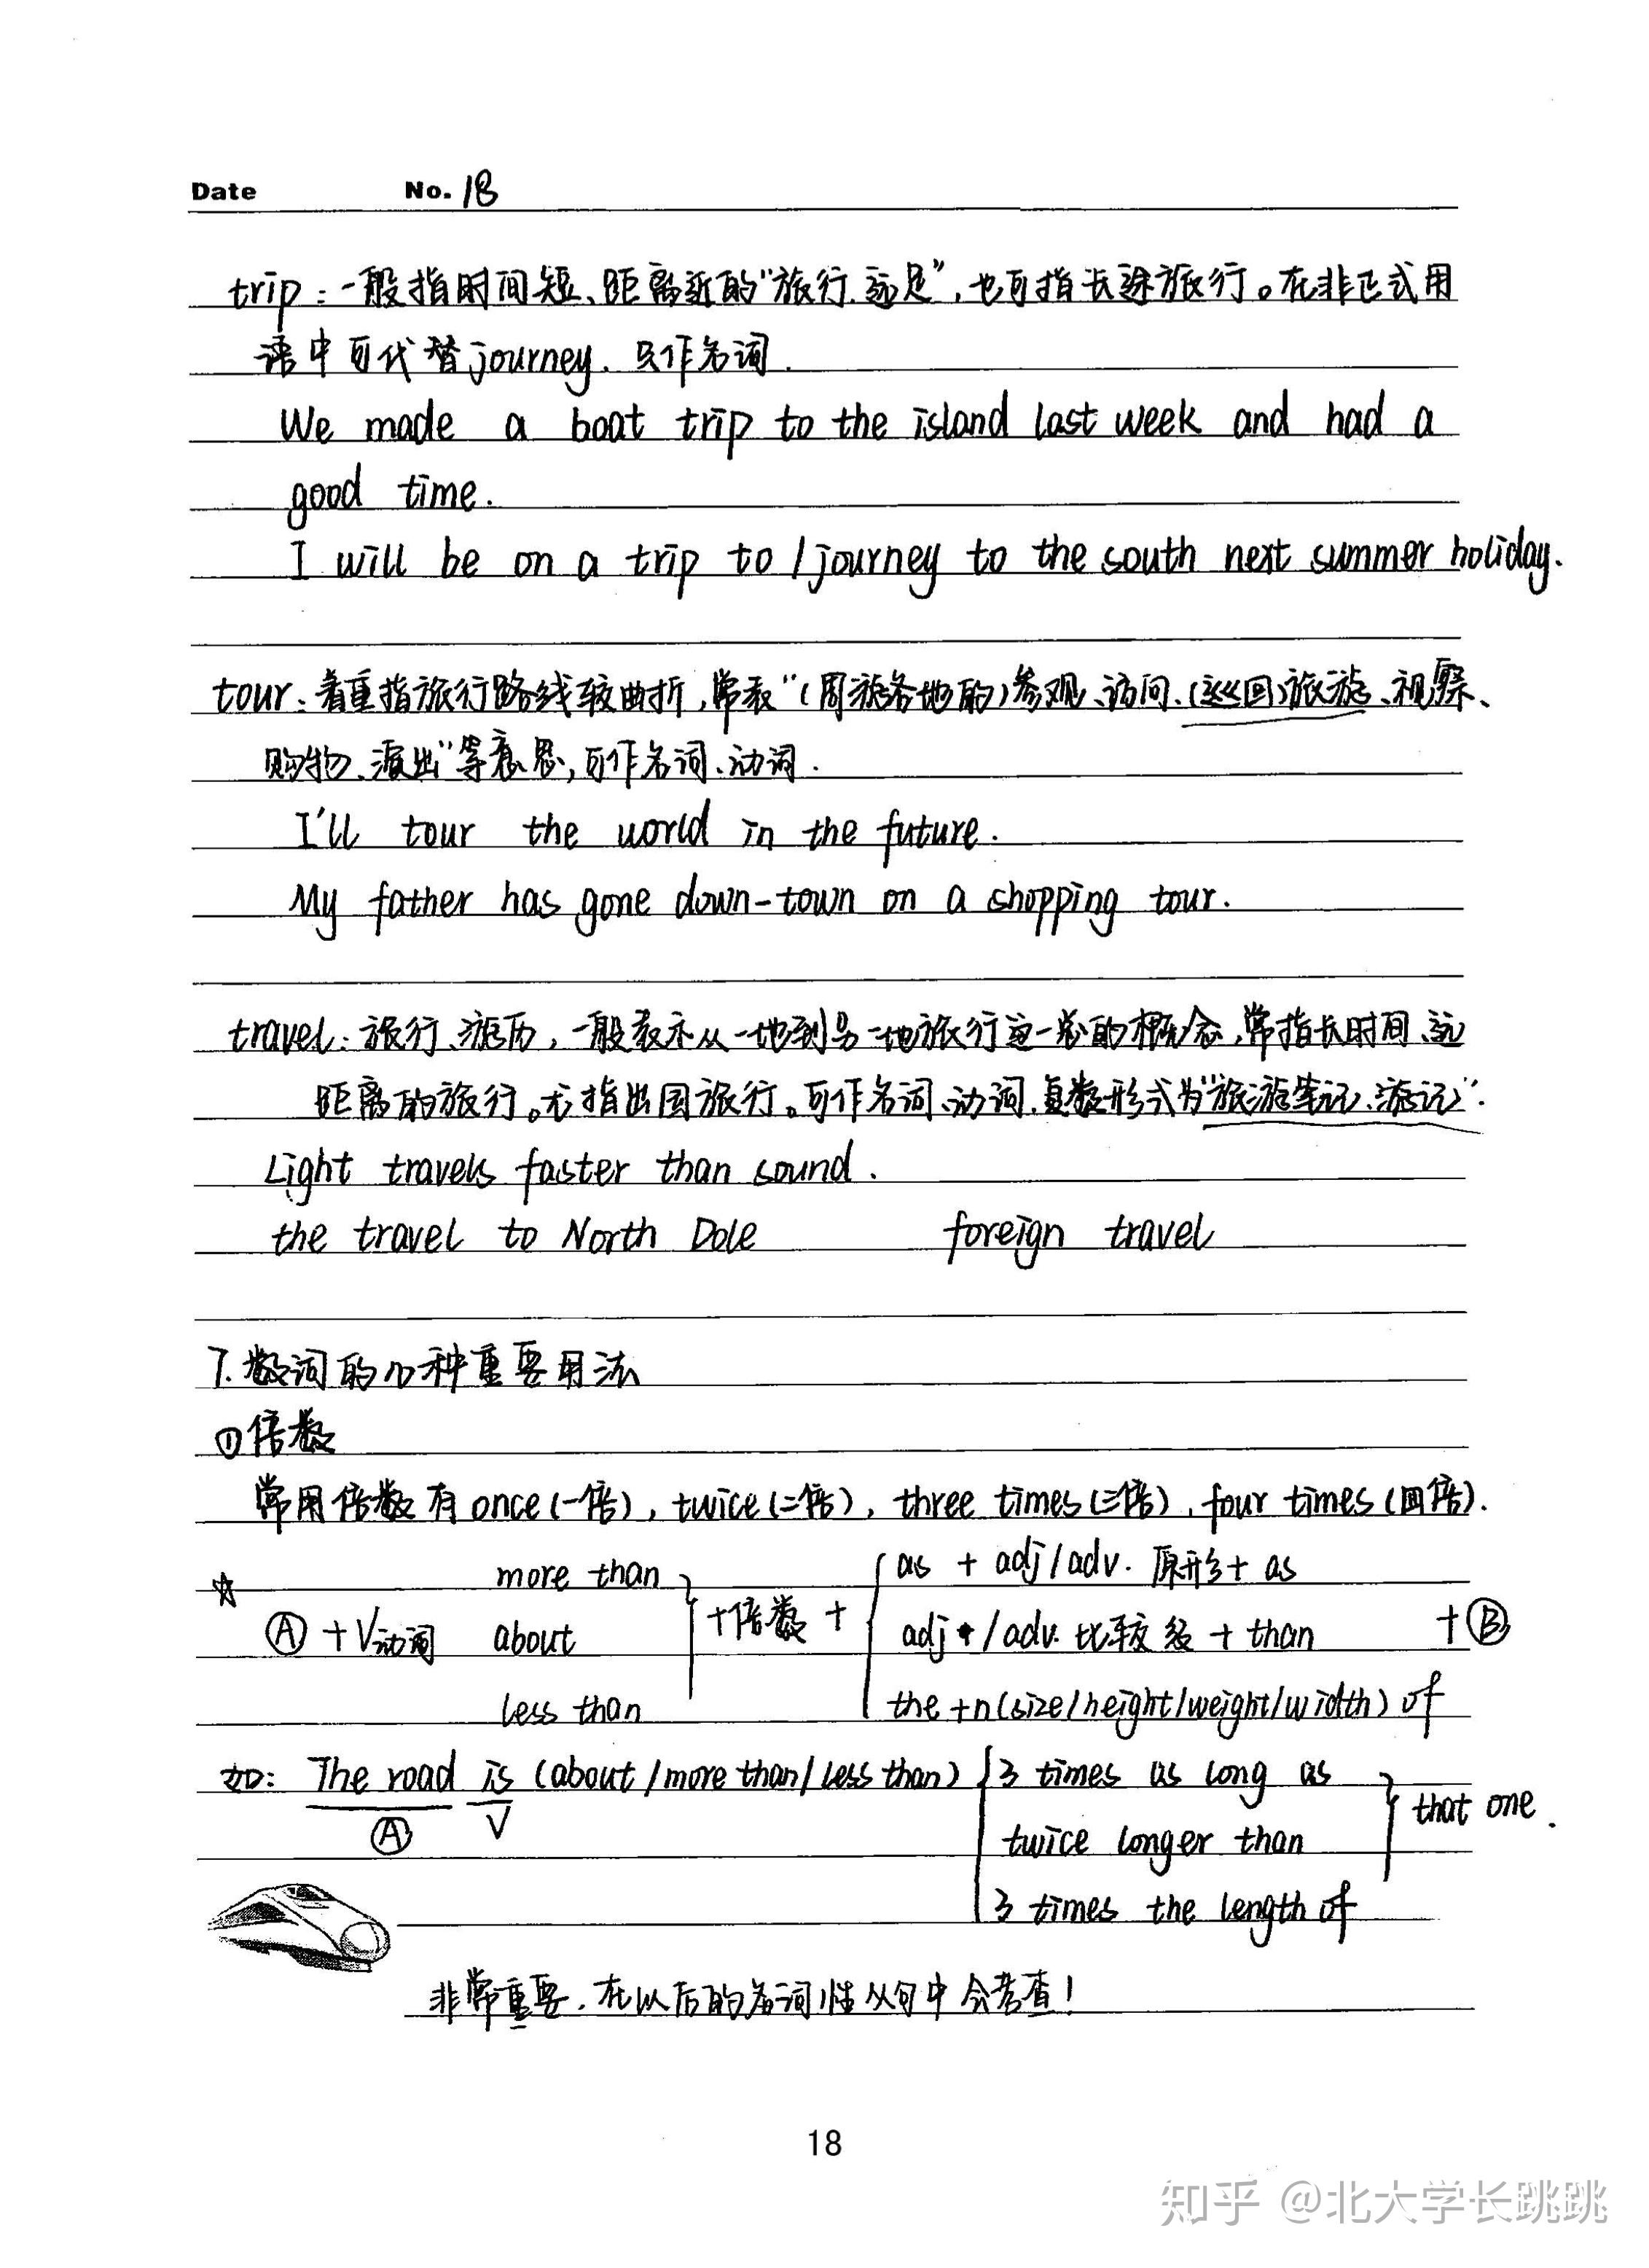 Date No. 18
trip：一般指时间短、距离近的“旅行、远足”，也可指长途旅行。在非正式用
语中可代替journey. 只作名词.
We made a boat trip to the island last week and had a
good time.
I will be on a trip to / journey to the south next summer holiday.
tour：着重指旅行路线较曲折，常表“（周游各地的）参观、访问、（巡回）旅游、视察、
购物、演出”等意思，可作名词、动词.
I'll tour the world in the future.
My father has gone down-town on a shopping tour.
travel：旅行、游历，一般表示从一地到另一地旅行这一总的概念，常指长时间、远
距离的旅行。尤指出国旅行。可作名词、动词.复数形式为“旅游笔记、游记”.
Light travels faster than sound.
the travel to North Dole foreign travel
7. 数词的几种重要用法
①倍数
常用倍数有once(一倍), twice(二倍), three times(三倍), four times(四倍).
☆ more than as + adj/adv. 原形 + as
Ⓐ + V动词 about +倍数+ adj /adv. 比较级 + than + Ⓑ
less than the +n(size/height/weight/width) of
如: The road is (about /more than/ less than) 3 times as long as
Ⓐ V that one.
twice longer than
3 times the length of
非常重要.在以后的名词性从句中会考查！
18
知乎 @北大学长跳跳